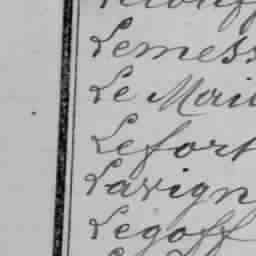 Lemess
Le Mai
Lefort
Lavign
Legoff